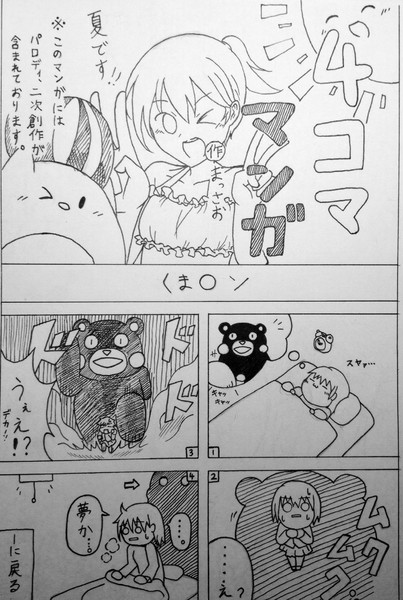 4コマ
マンガ
作 まっさお
夏です!!
※このマンガには
パロディ、二次創作が
含まれております。
くま〇ン
1
スヤァ…
ギャッ
ギャッ
2
ムクムク
……え?
3
ドドドド
うぇえ!?
デカーッ!
4
……。
夢か…。
1に戻る